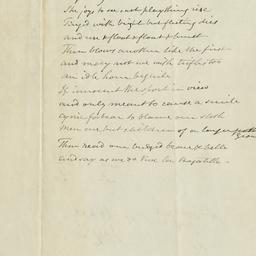 The joys to us cast plaything rise
Tinged with bright but fleeting dies
and we float & float & burst
Then blows another like the first
and may not we with trifles too
an idle hour beguile
If innocent the sport in view
and only meant to cause a smile
cynic forbear to blame our sloth
men are but children of a larger growth
Then read our budget beaux & belle
and say as we do Vive la Bagatelle